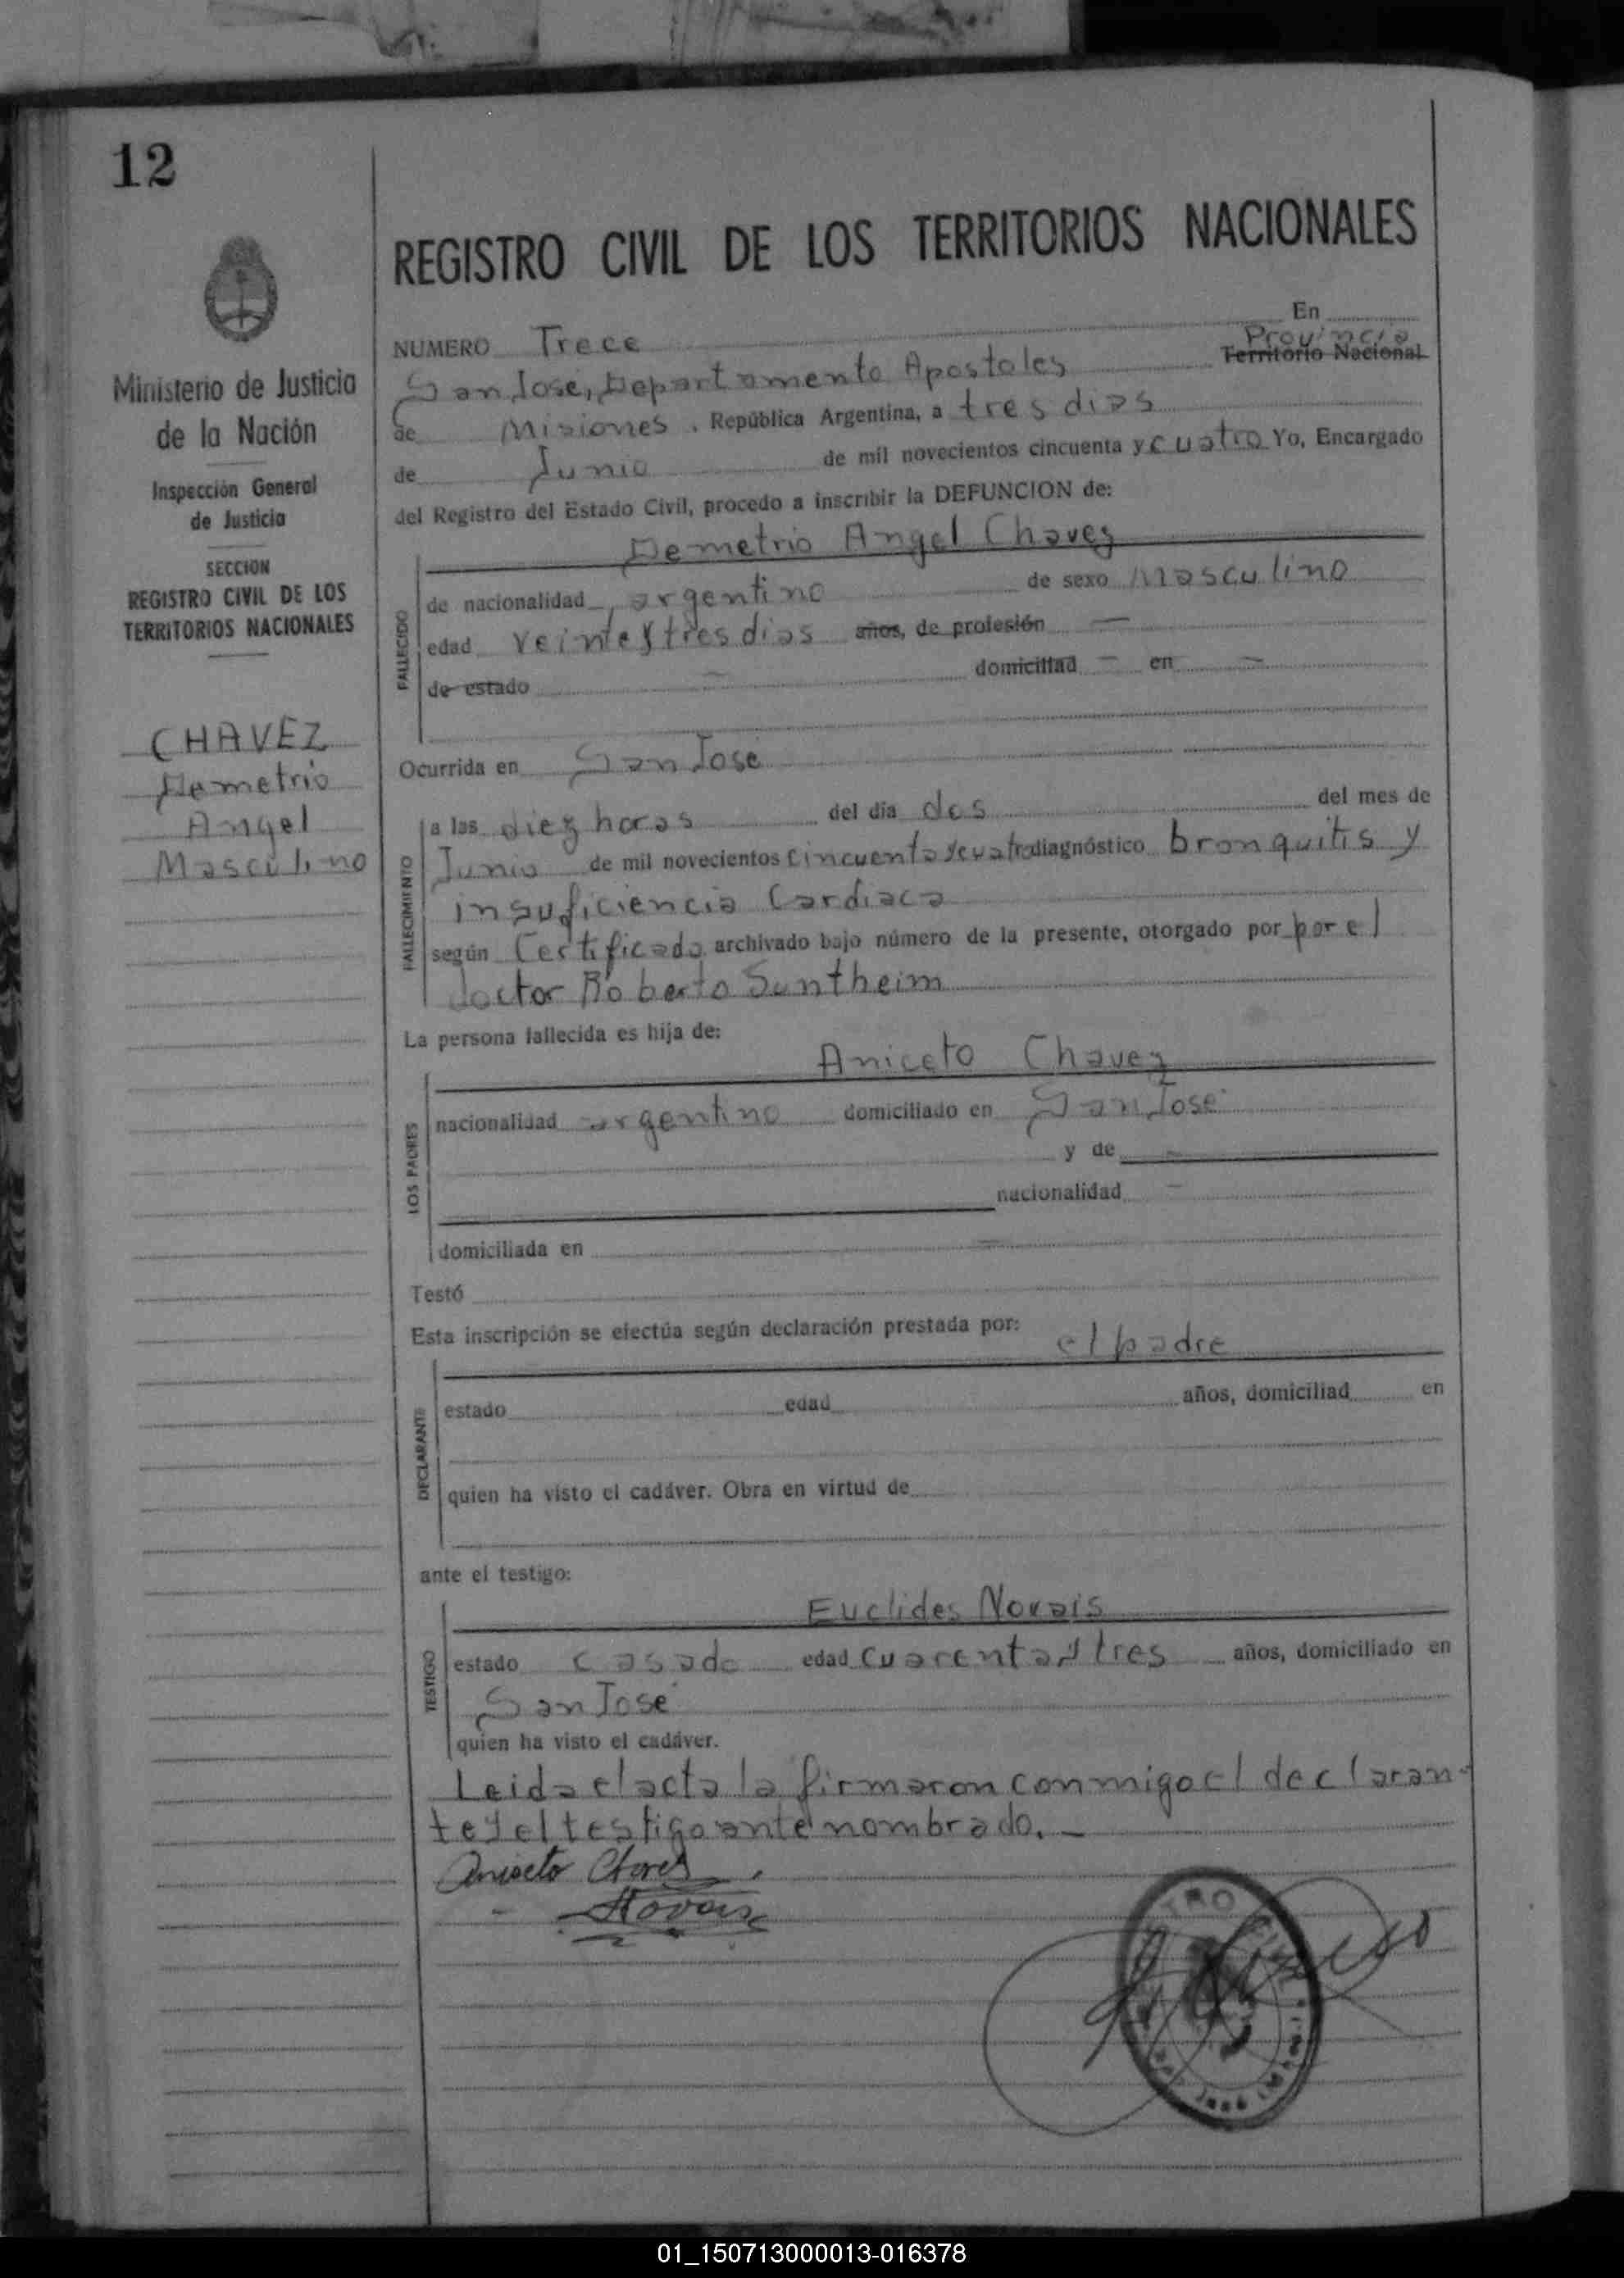 12
REGISTRO CIVIL DE LOS TERRITORIOS NACIONALES
Ministerio de Justicia
de la Nación
Inspección General
de Justicia
SECCION
REGISTRO CIVIL DE LOS
TERRITORIOS NACIONALES
CHAVEZ
Demetrio
Angel
Masculino
En
NUMERO Trece Provincia
San José, Departamento Apostoles Territorio Nacional
de Misiones, República Argentina, a tres dias
de Junio de mil novecientos cincuenta y cuatro Yo, Encargado
del Registro del Estado Civil, procedo a inscribir la DEFUNCION de:
Demetrio Angel Chavez
FALLECIDO
de nacionalidad argentino de sexo masculino
edad veinte y tres dias años, de profesión —
de estado — domiciliad — en —
Ocurrida en San José
FALLECIMIENTO
a las diez horas del día dos del mes de
Junio de mil novecientos cincuenta y cuatro diagnóstico bronquitis y
insuficiencia Cardiaca
según Certificado archivado bajo número de la presente, otorgado por por el
doctor Roberto Suntheim
La persona fallecida es hija de:
Aniceto Chavez
LOS PADRES
nacionalidad argentino domiciliado en San José
y de —
nacionalidad —
domiciliada en —
Testó
Esta inscripción se efectúa según declaración prestada por:
el padre
DECLARANTE
estado edad años, domiciliad en
quien ha visto el cadáver. Obra en virtud de
ante el testigo:
Euclides Novais
TESTIGO
estado casado edad cuarenta y tres años, domiciliado en
San José
quien ha visto el cadáver.
Leida el acta la firmaron conmigo el declaran-
te y el testigo ante nombrado. —
Aniceto Chavez
Novais
01_150713000013-016378